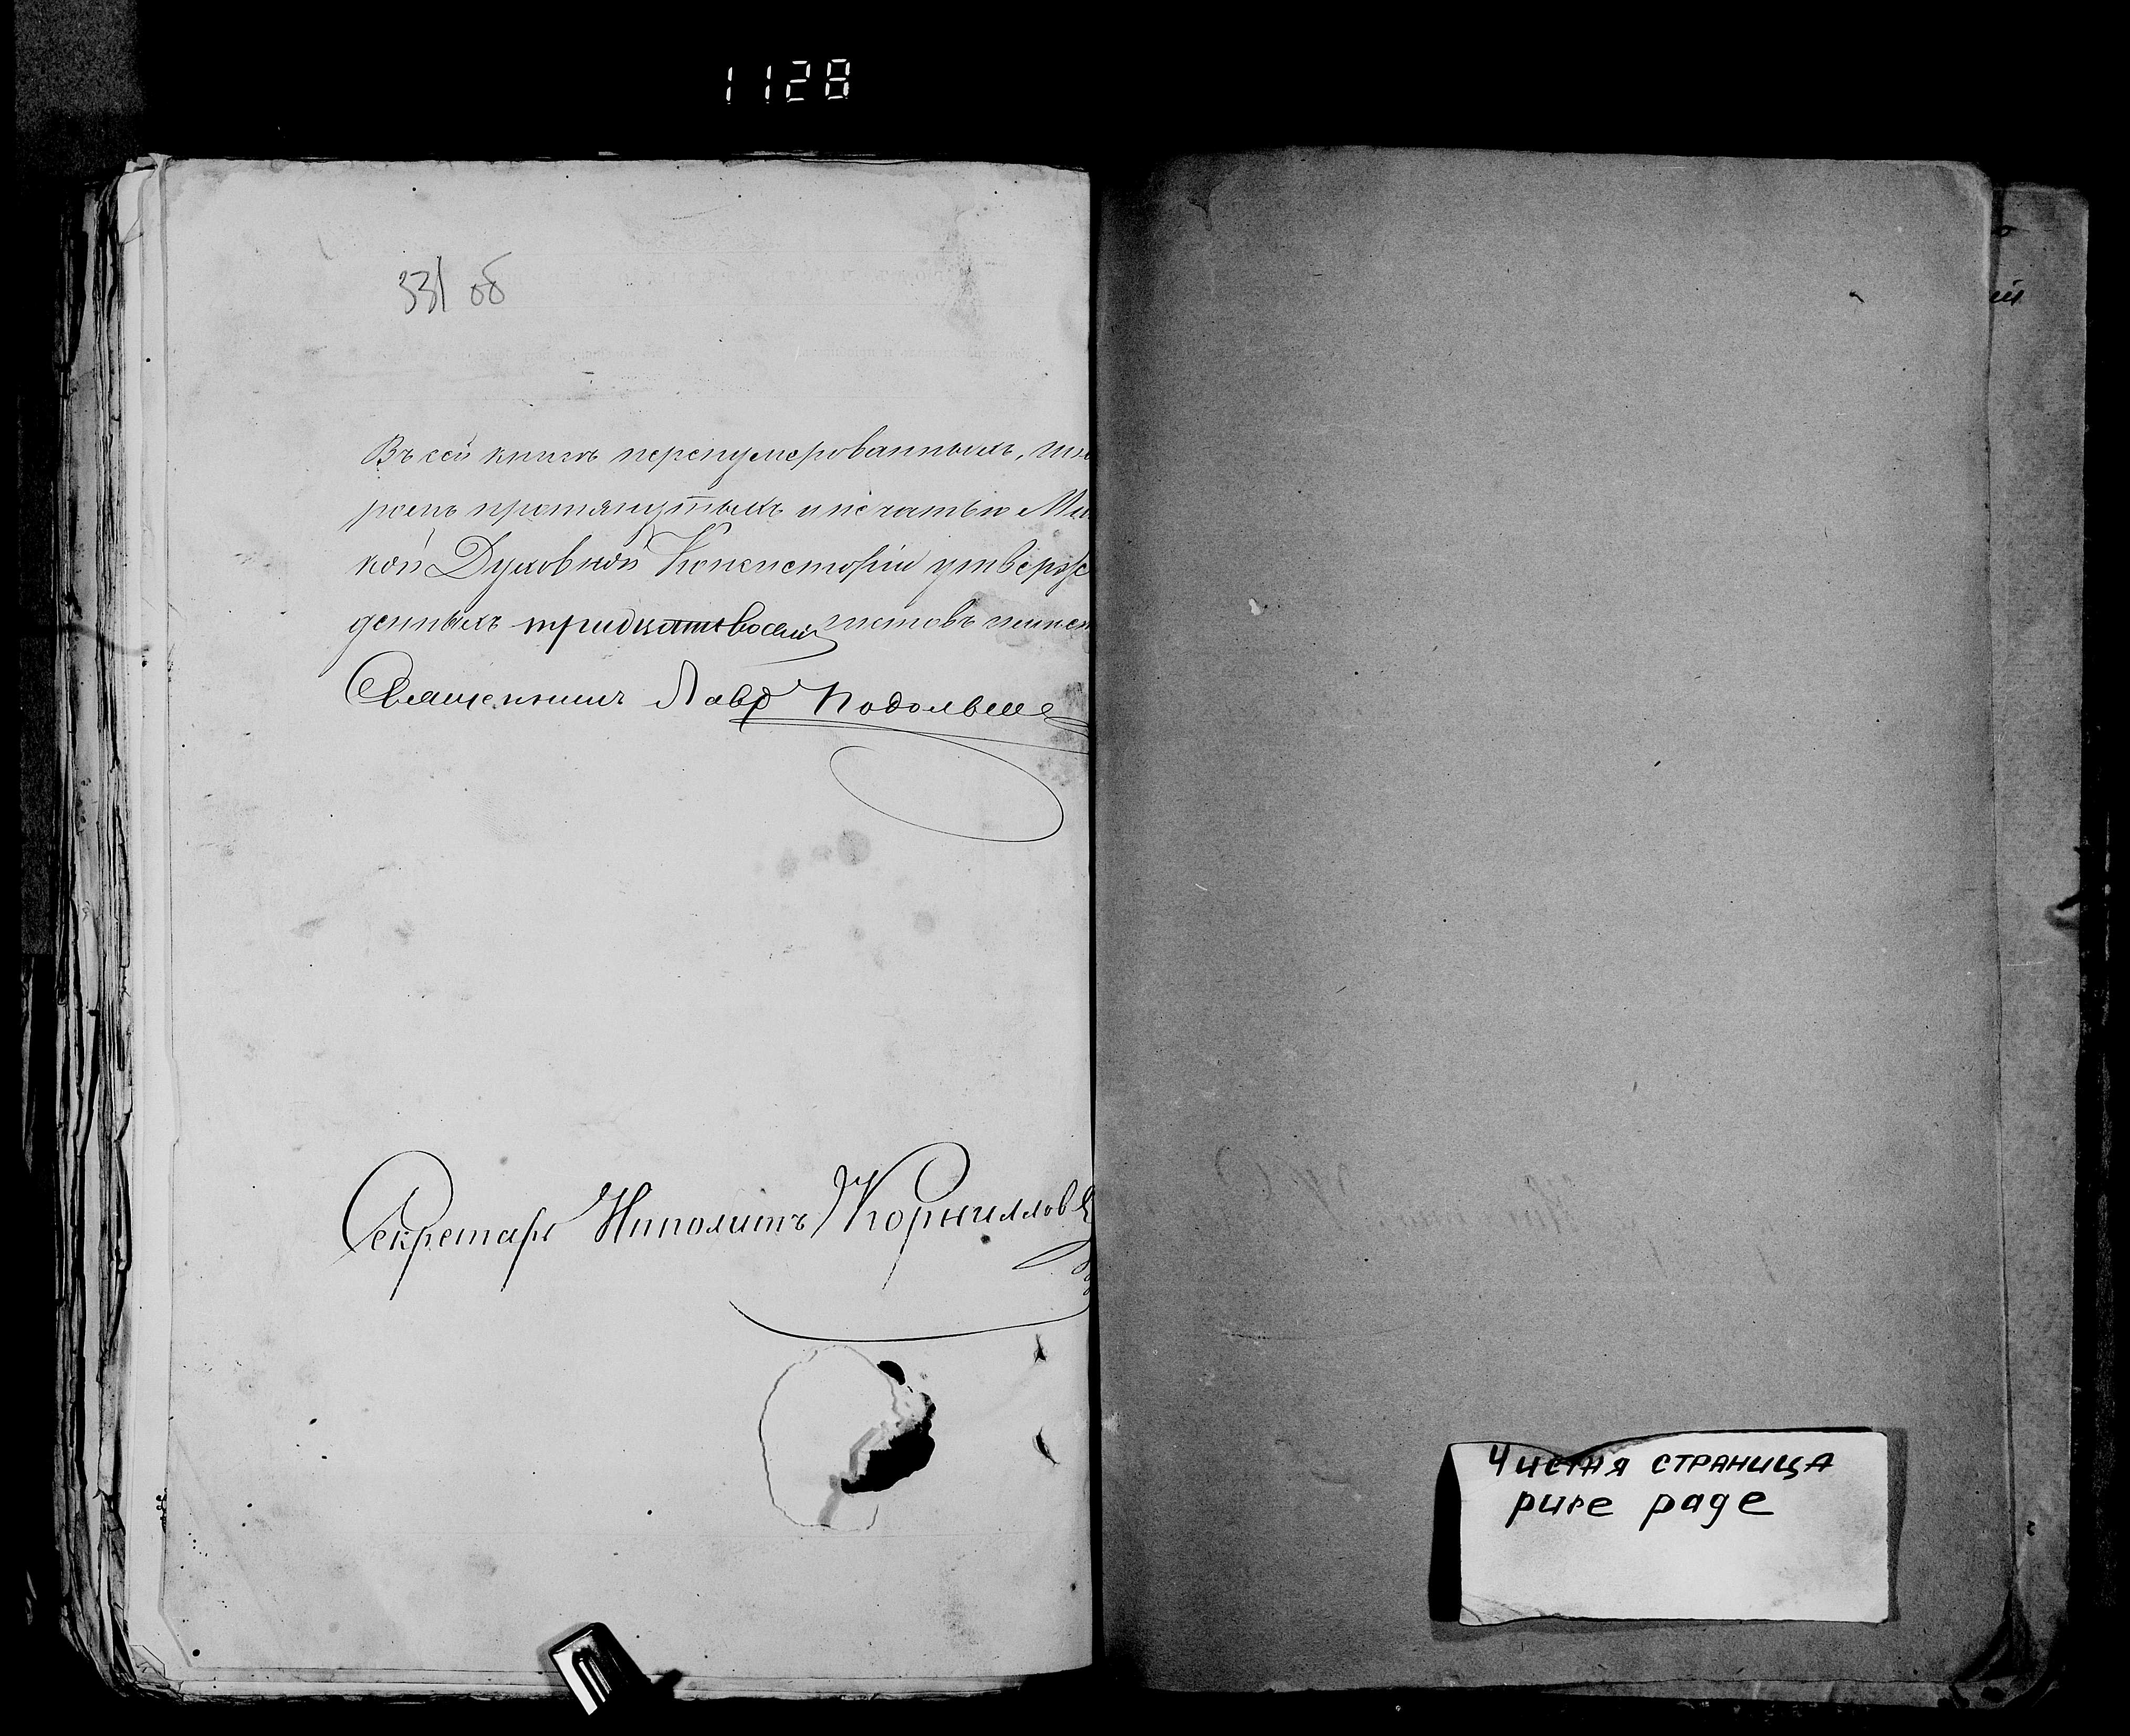 1128
331 об
Въ сей книгѣ перенумерованныхъ, шну
ромъ протянутыхъ и печатью Мин
кой Духовной Консисторіи утверж
денныхъ тридцать восемь листовъ
Священникъ Лавр Подольск
Секретарь Ипполитъ Корниллов
Чистая страница
pure page